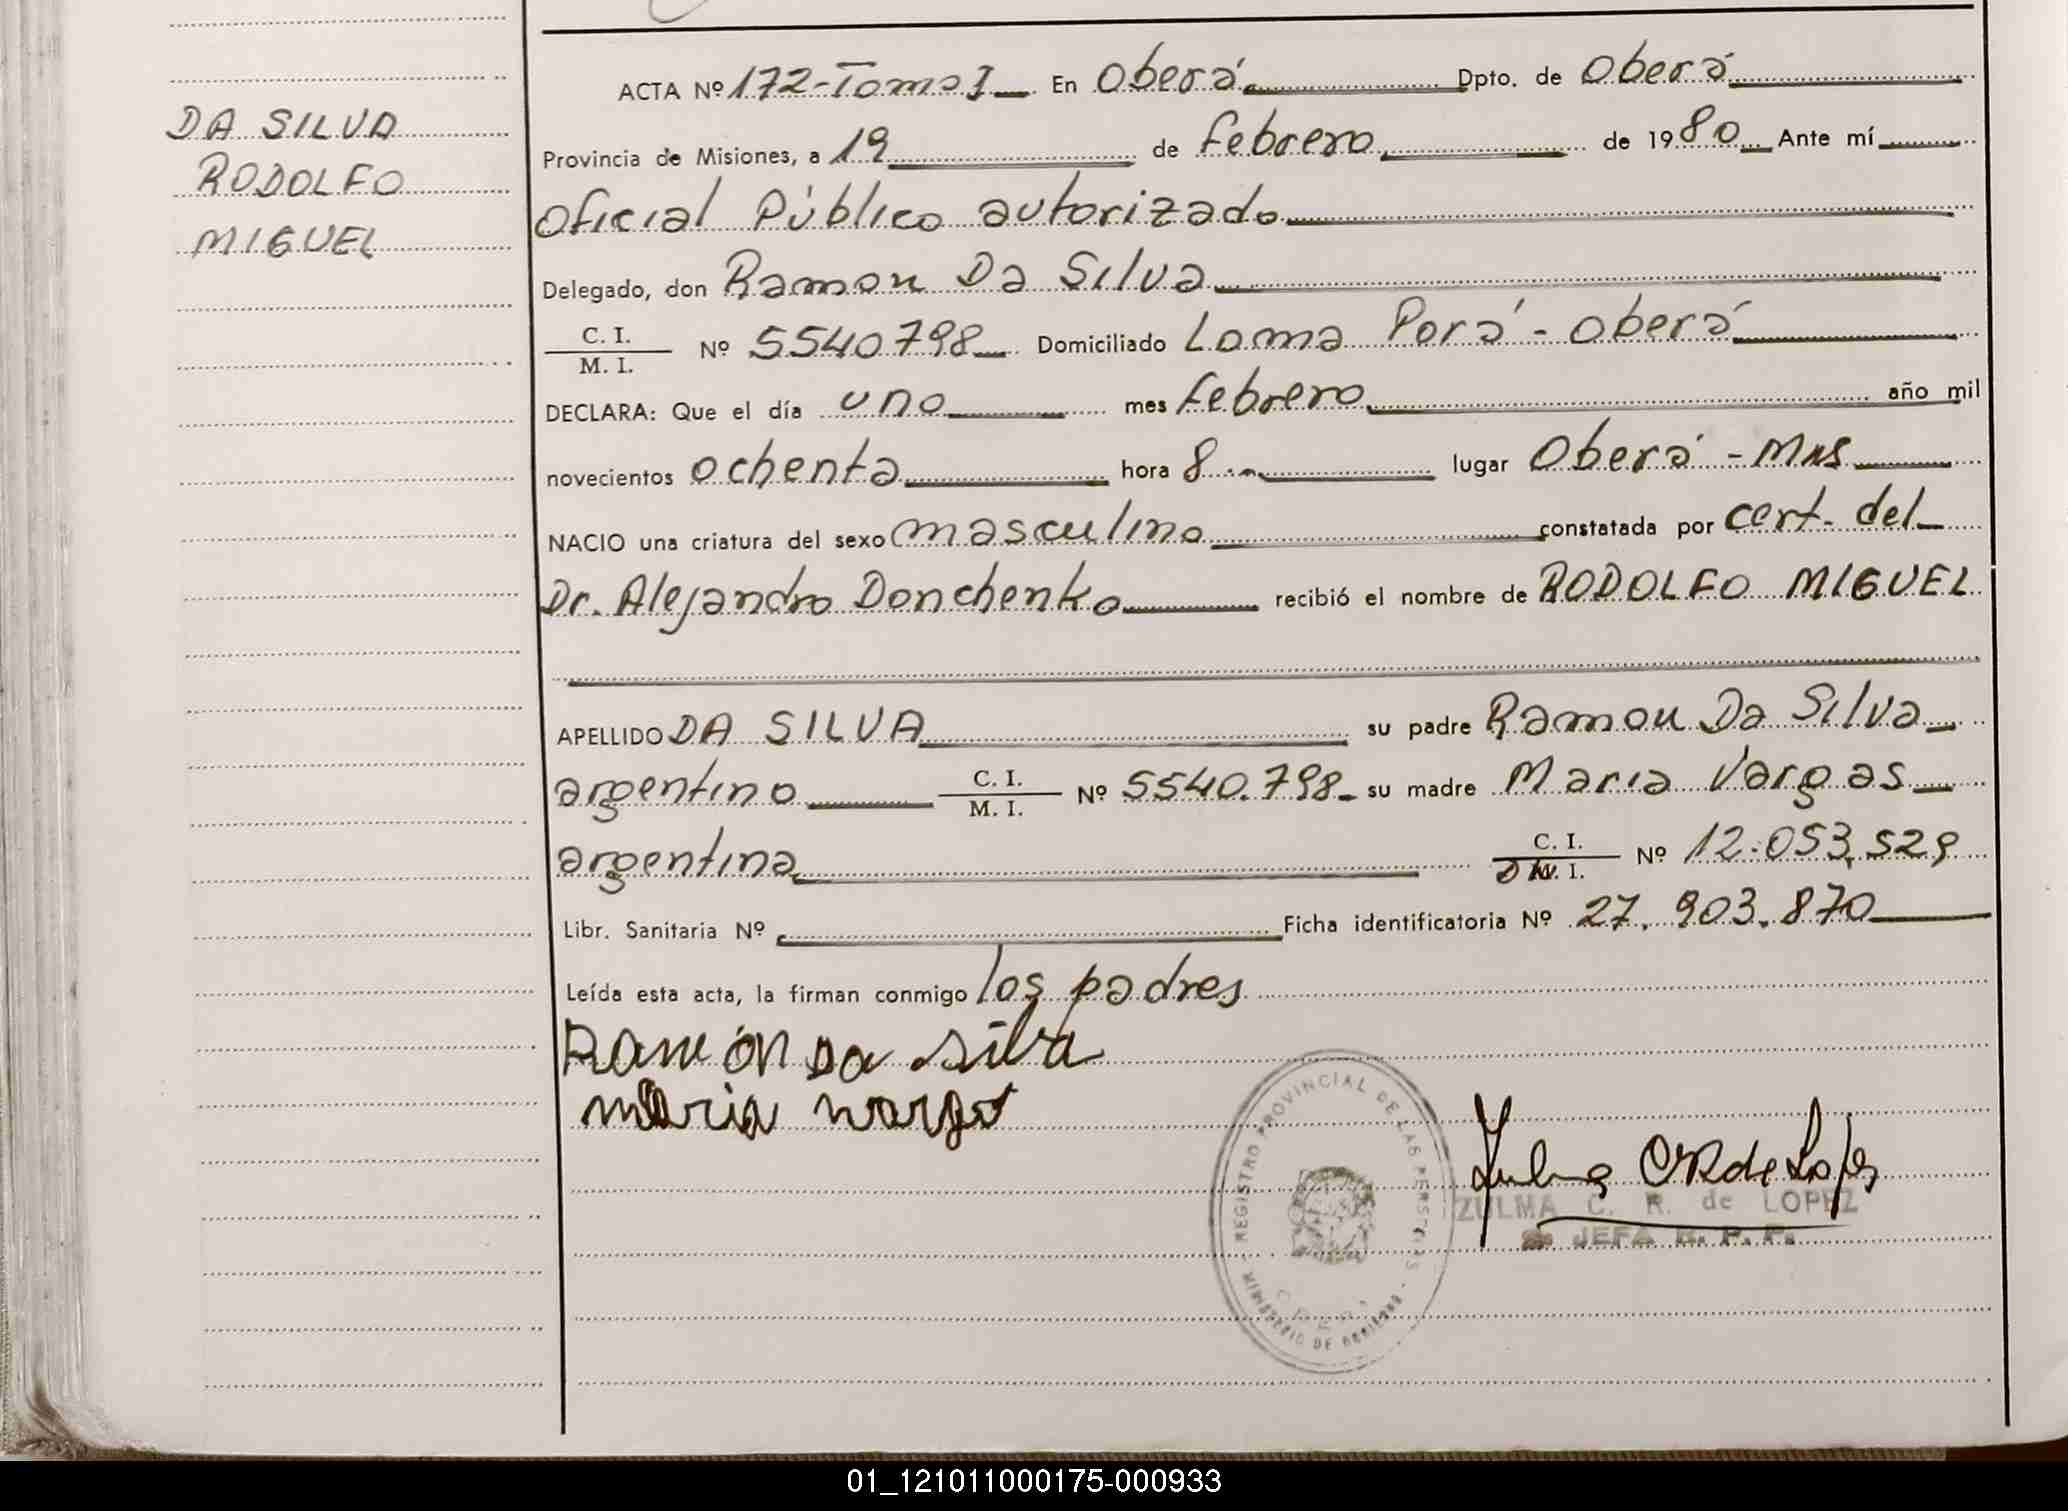 ACTA Nº 172-Tomo I En Oberá Dpto. de Oberá
DA SILVA
RODOLFO
MIGUEL
Provincia de Misiones, a 19 de Febrero de 1980 Ante mí
Oficial Público autorizado
Delegado, don Ramon Da Silva
C. I.
M. I. Nº 5540798 Domiciliado Loma Porá - Oberá
DECLARA: Que el día uno mes Febrero año mil
novecientos ochenta hora 8 lugar Oberá - Mns
NACIO una criatura del sexo masculino constatada por cert. del
Dr. Alejandro Donchenko recibió el nombre de RODOLFO MIGUEL
APELLIDO DA SILVA su padre Ramon Da Silva
argentino C. I. M. I. Nº 5540.798 su madre Maria Vargas
argentina C. I. D N. I. Nº 12.053.529
Libr. Sanitaria Nº Ficha identificatoria Nº 27.903.870
Leída esta acta, la firman conmigo los padres
Ramón Da silva
maria
REGISTRO PROVINCIAL DE LAS PERSONAS
MINISTERIO DE GOBIERNO
OBERA
ZULMA C. R. de LOPEZ
JEFA R. P. P.
01_121011000175-000933